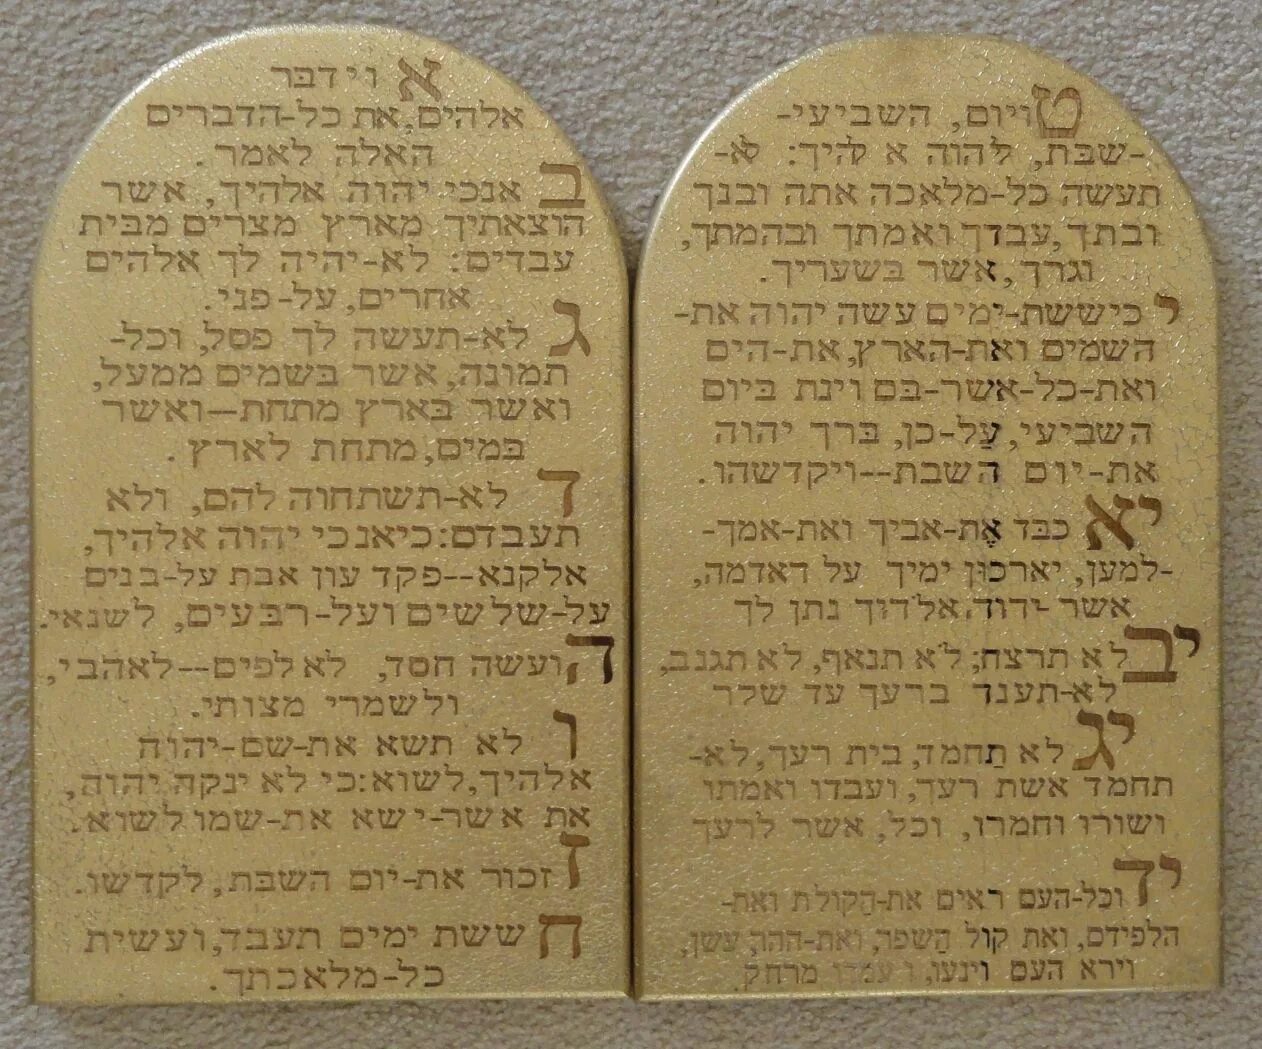 א וידבר
אלהים, את כל-הדברים
האלה לאמר.
ב אנכי יהוה אלהיך, אשר
הוצאתיך מארץ מצרים מבית
עבדים: לא-יהיה לך אלהים
אחרים, על-פני.
ג לא-תעשה לך פסל, וכל-
תמונה, אשר בשמים ממעל,
ואשר בארץ מתחת--ואשר
במים, מתחת לארץ.
ד לא-תשתחוה להם, ולא
תעבדם: כיאנכי יהוה אלהיך,
אלקנא--פקד עון אבת על-בנים
על-שלשים ועל-רבעים, לשנאי.
ה ועשה חסד, לאלפים--לאהבי,
ולשמרי מצותי.
ו לא תשא את-שם-יהוה
אלהיך, לשוא: כי לא ינקה יהוה,
את אשר-ישא את-שמו לשוא.
ז זכור את-יום השבת, לקדשו.
ח ששת ימים תעבד, ועשית
כל-מלאכתך.
ט ויום, השביעי-
-שבת, ליהוה א להיך: לא-
תעשה כל-מלאכה אתה ובנך
ובתך, עבדך ואמתך ובהמתך,
וגרך, אשר בשעריך.
י כיששת-ימים עשה יהוה את-
השמים ואת-הארץ, את-הים
ואת-כל-אשר-בם וינח ביום
השביעי, עַל-כן, ברך יהוה
את-יום השבת--ויקדשהו.
יא כבד אֶת-אביך ואת-אמך-
-למען, יארכוּן ימיך על האדמה,
אשר-יהוה אלהיך נתן לך
יב לא תרצח; לא תנאף, לא תגנב,
לא-תענה ברעך עד שקר
יג לא תַחמד, בית רעך, לא-
תחמד אשת רעך, ועבדו ואמתו
ושורו וחמרו, וכל, אשר לרעך
יד וכל-העם ראים את-הַקולת ואת-
הלפידם, ואת קול הַשפר, ואת-ההר, עשן,
וירא העם וינעו, ויעמדו מרחק.